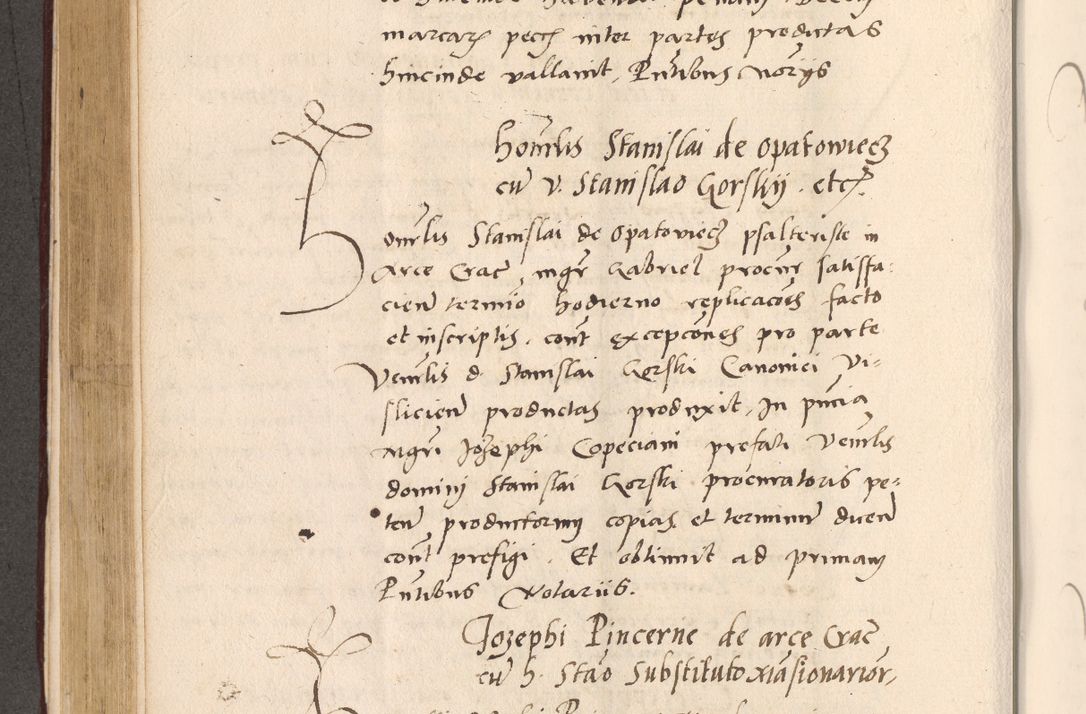 marcarum pecc inter partes predictas
hincinde vallavit, Pntibus Norijs
honrlis Stanislai de Opatowiecz
cu v. Stanislao Gorskij. etc.
Honrlis Stanislai de Opatoviecz psalteriste in
Arce Crac, mgr Gabriel procur satisffa:
cien termino hodierno replicacoes facto
et inscriptis. cont excepcoes pro parte
Venrlis d. Stanislai Gorski Canonici Vi-
slicien productas produxit, In pncia
mgri Josephi Copeciani prefati Venrlis
domini Stanislai Gorski procuratoris pe-
ten productorum copias et terminum dicen
cont prefigi. Et obtinuit ad primam
Pntibus Notariis.
Jozephi Pincerne de arce Crac
cu h. Stao Substituto Mansionarior.